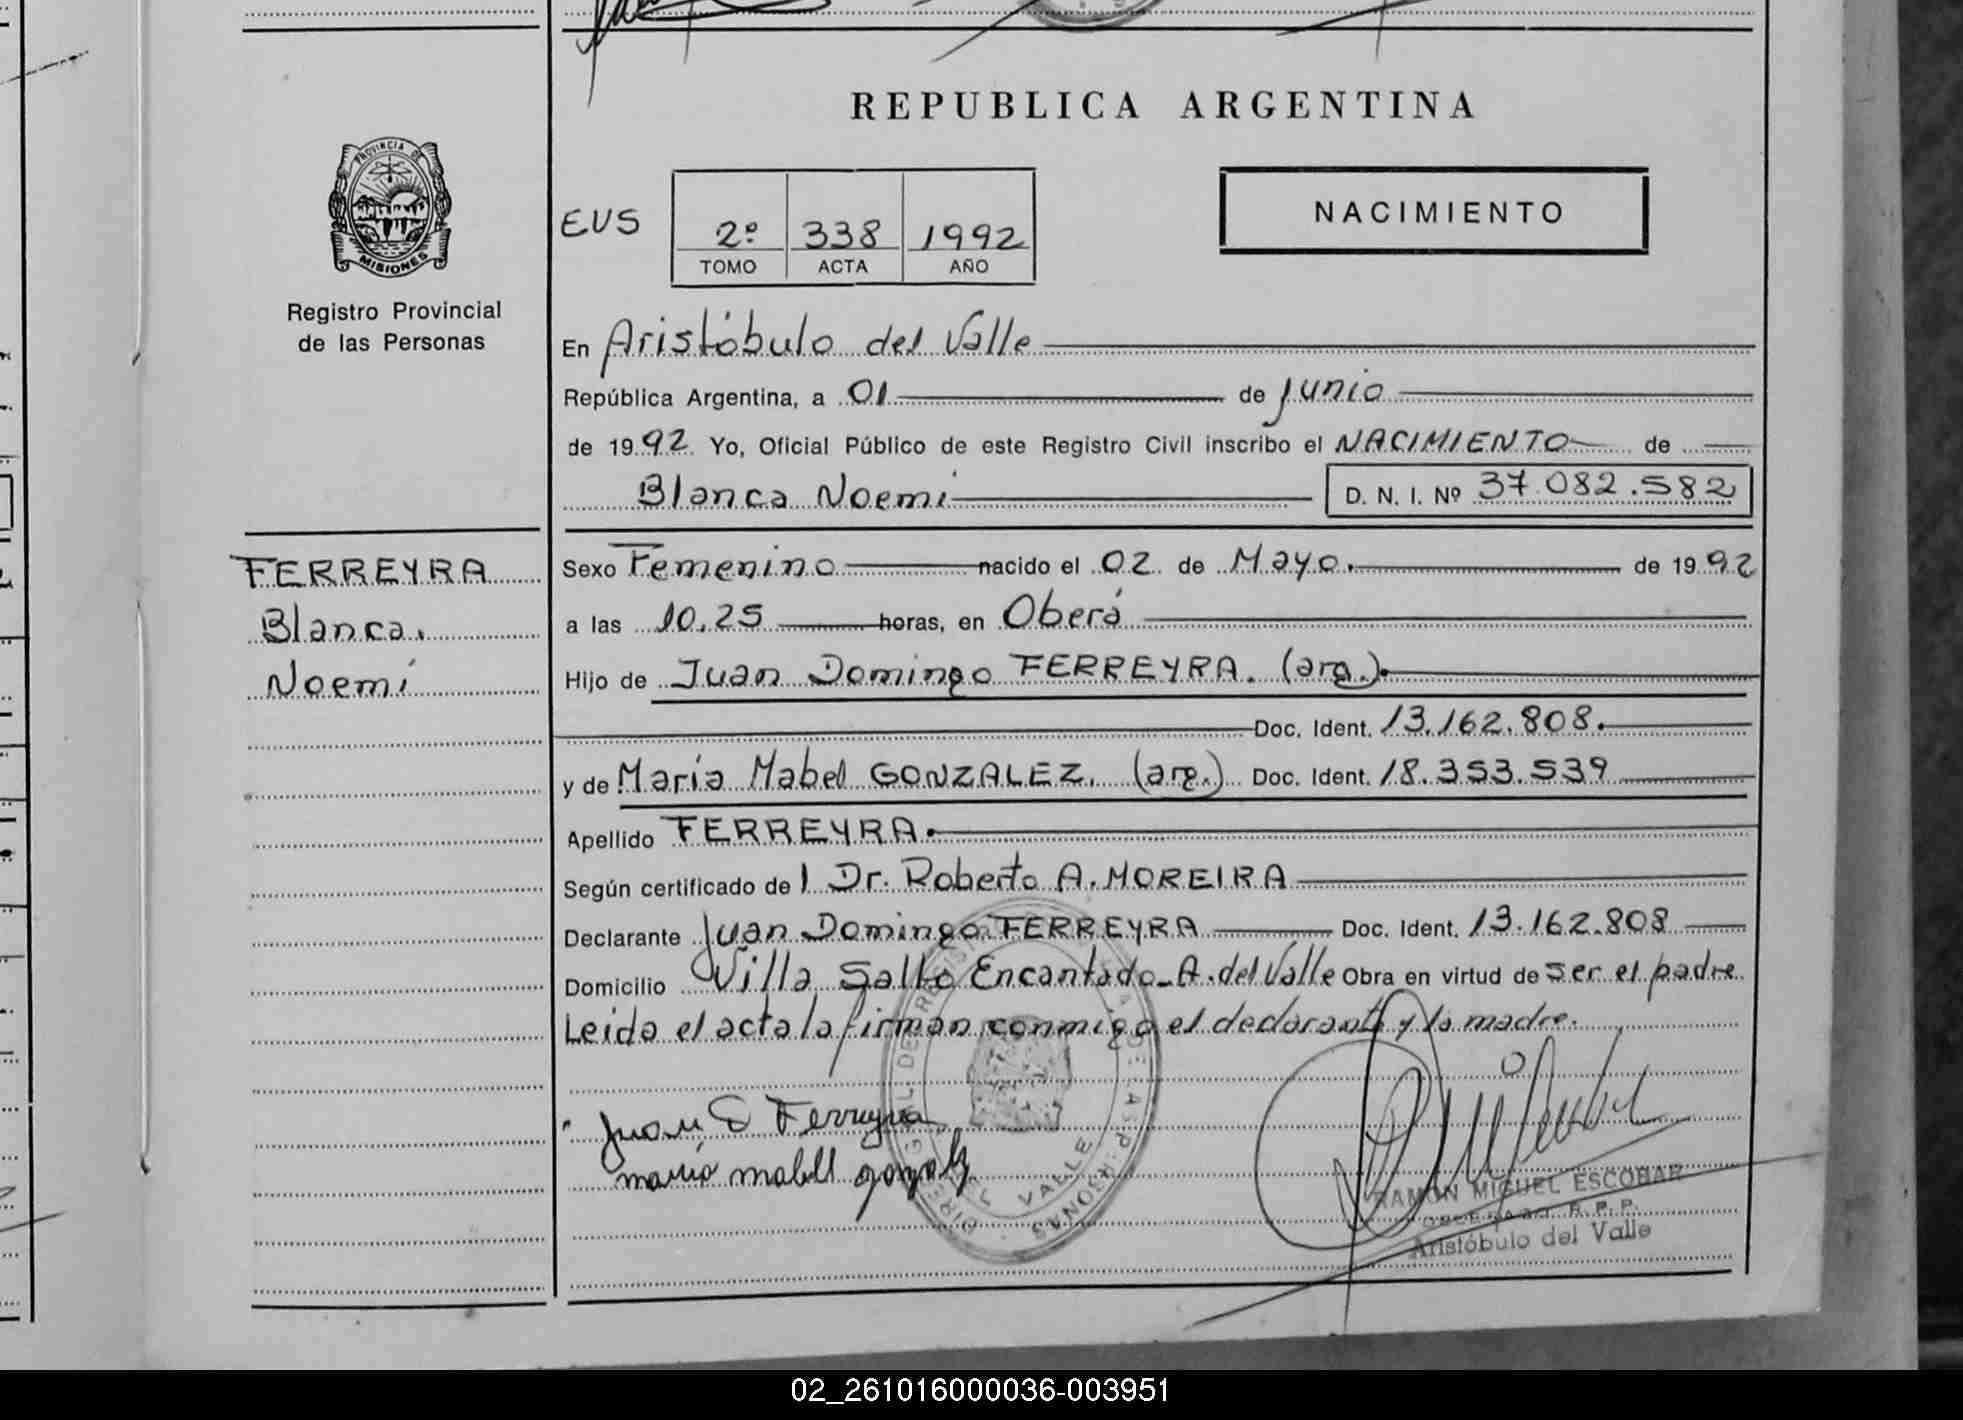 REPUBLICA ARGENTINA
PROVINCIA DE
MISIONES
Registro Provincial
de las Personas
EUS
2º 338 1992
TOMO ACTA AÑO
NACIMIENTO
En Aristóbulo del Valle
República Argentina, a 01 de Junio
de 1992 Yo, Oficial Público de este Registro Civil inscribo el NACIMIENTO de
Blanca Noemi D. N. I. Nº 37.082.582
FERREYRA
Blanca
Noemí
Sexo Femenino nacido el 02 de Mayo. de 1992
a las 10.25 horas, en Oberá
Hijo de Juan Domingo FERREYRA. (arg.)
Doc. Ident. 13.162.808.
y de María Mabel GONZALEZ. (arg.) Doc. Ident. 18.353.539
Apellido FERREYRA.
Según certificado de l Dr. Roberto A. MOREIRA
Declarante Juan Domingo FERREYRA Doc. Ident. 13.162.808
Domicilio Villa Salto Encantado - A. del Valle Obra en virtud de ser el padre
Leida el acta la firman conmigo el declarante y la madre.
Juan D Ferreyra
maria mabell gonzalez
RAMON MIGUEL ESCOBAR
R. P. P.
Aristóbulo del Valle
02_261016000036-003951